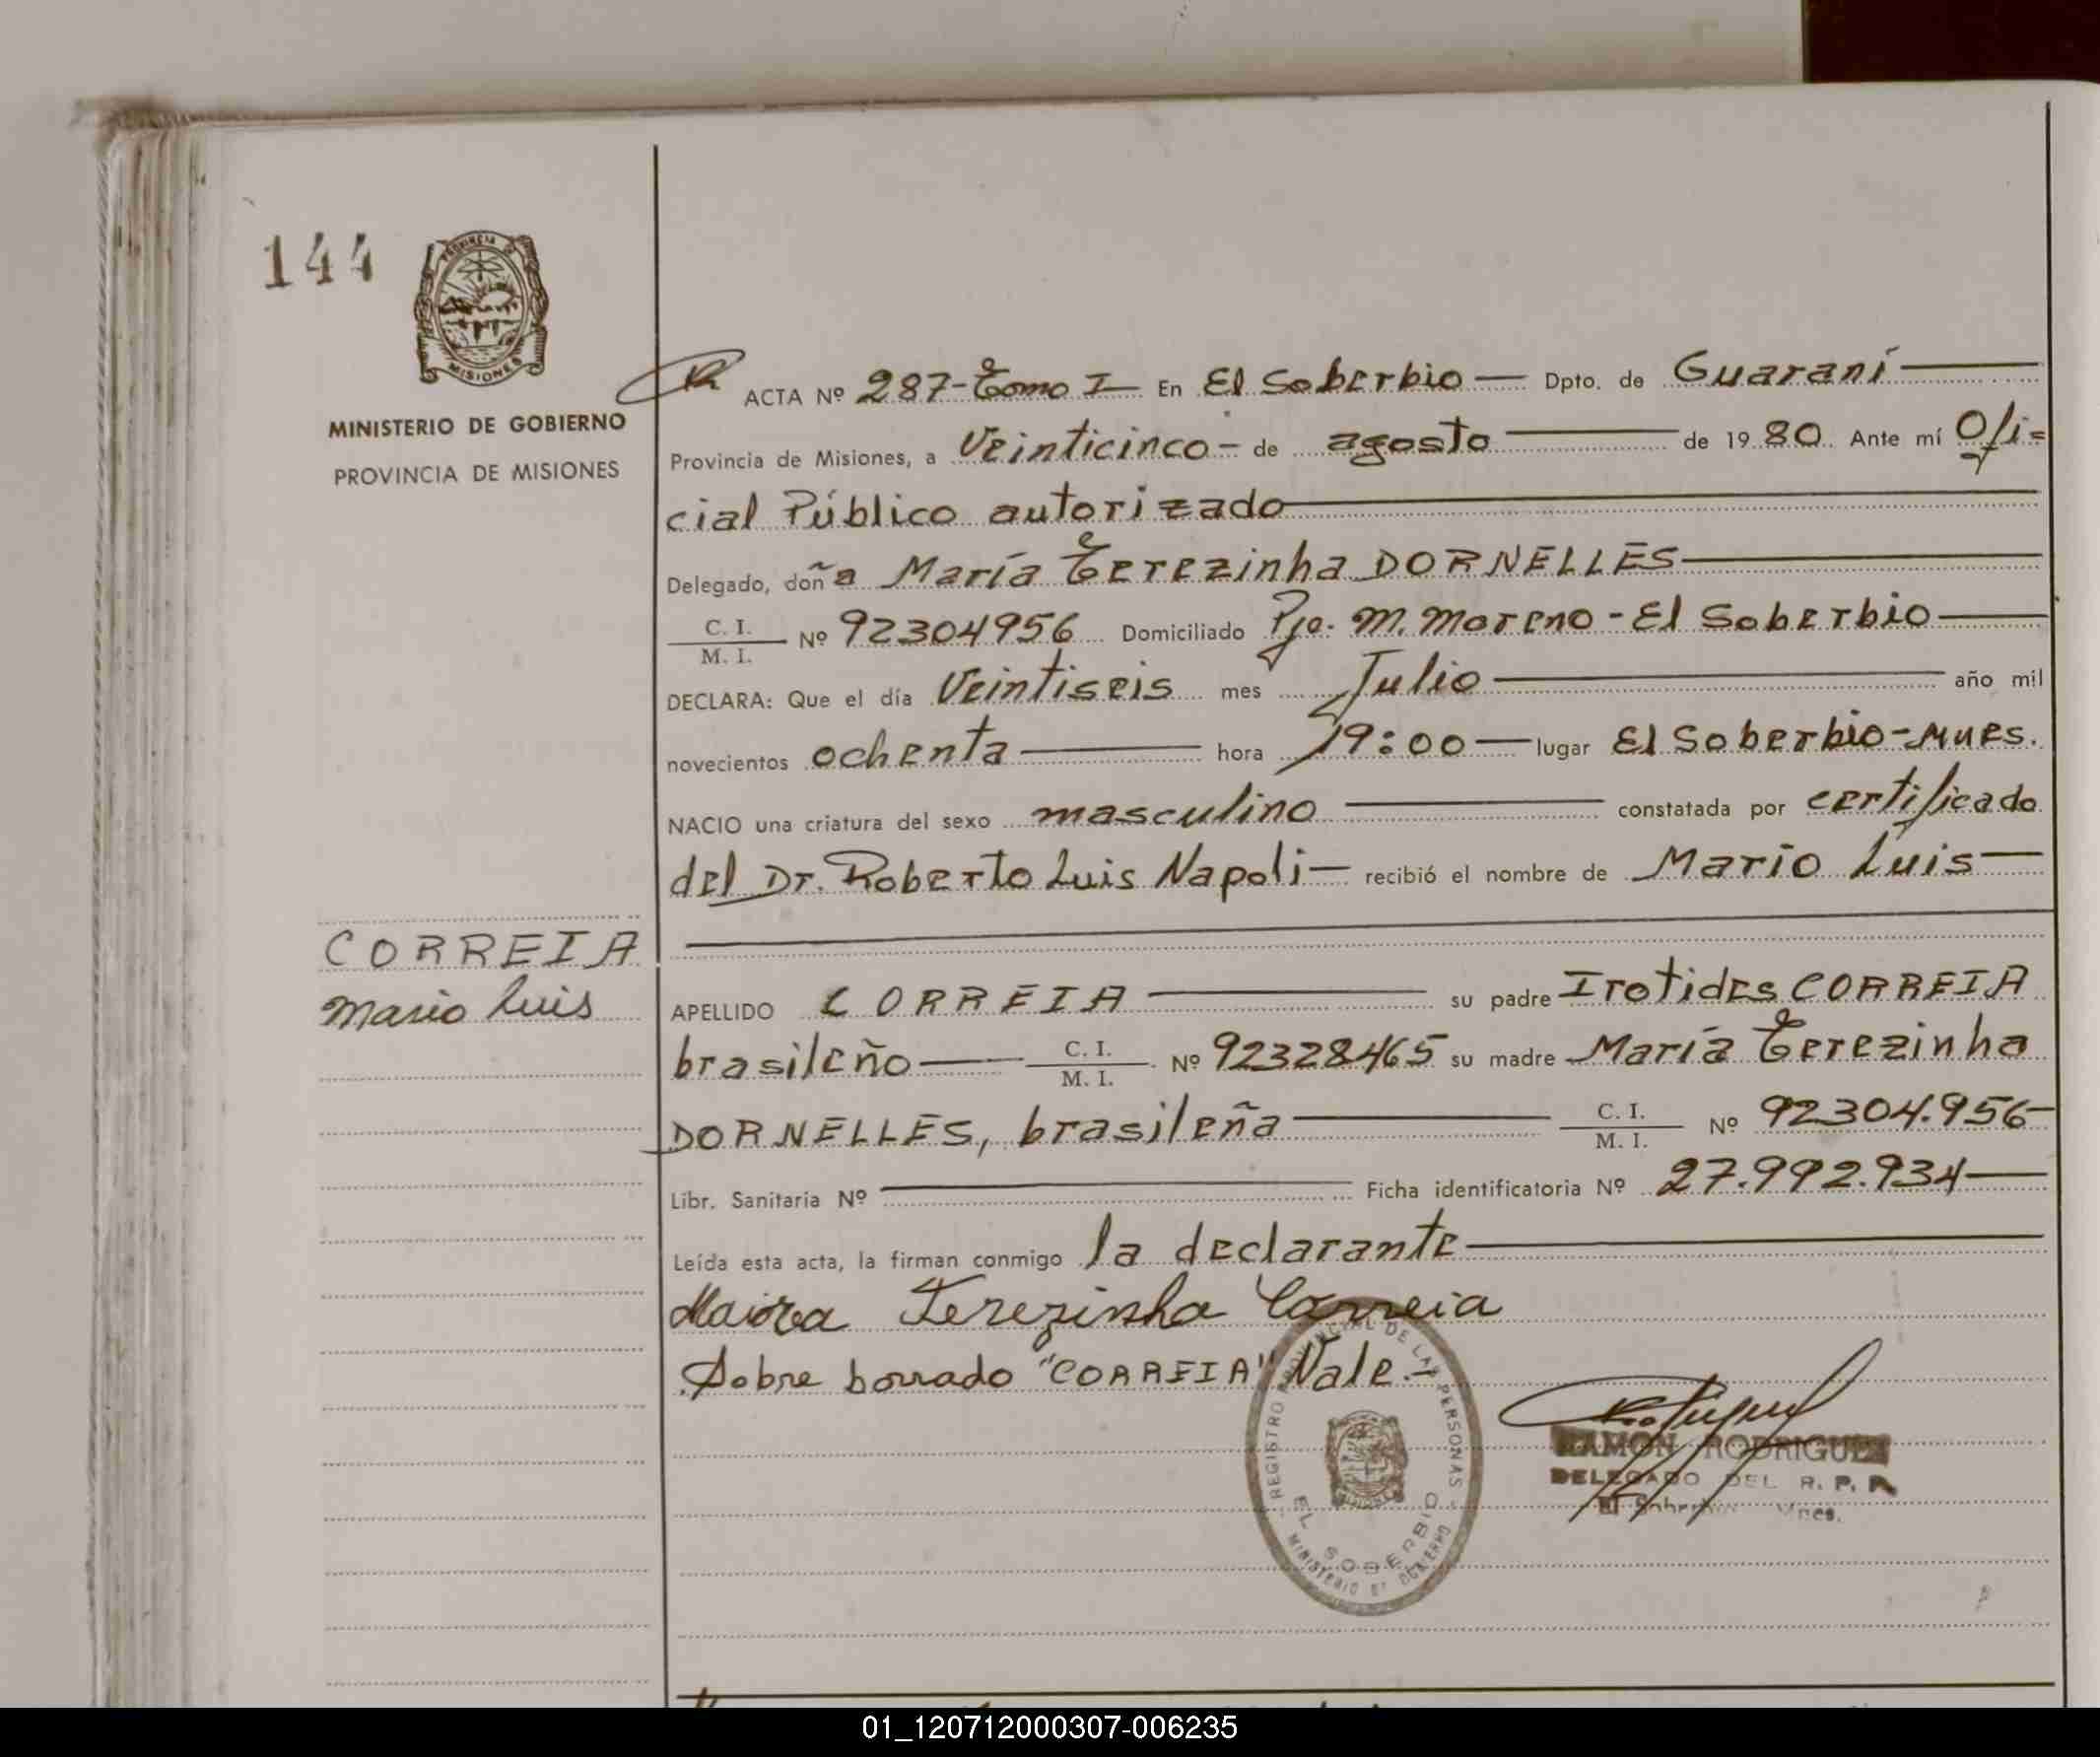 144
PROVINCIA DE
MISIONES
MINISTERIO DE GOBIERNO
PROVINCIA DE MISIONES
ACTA Nº 287-Tomo I En El Soberbio Dpto. de Guaraní
Provincia de Misiones, a Veinticinco - de agosto de 1980. Ante mí Ofi=
cial Público autorizado
Delegado, doña María Terezinha DORNELLES
C. I.
M. I. Nº 92304956 Domiciliado Pje. M. Moreno - El Soberbio
DECLARA: Que el día Veintiseis mes Julio año mil
novecientos ochenta hora 19:00 lugar El Soberbio-Mnes.
NACIO una criatura del sexo masculino constatada por certificado
del Dr. Roberto Luis Napoli recibió el nombre de Mario Luis
CORREIA
Mario Luis
APELLIDO CORREIA su padre Irotides CORREIA
brasileño C. I.
M. I. Nº 92328465 su madre María Terezinha
DORNELLES, brasileña C. I.
M. I. Nº 92304.956
Libr. Sanitaria Nº Ficha identificatoria Nº 27.992.934
Leída esta acta, la firman conmigo la declarante
Terezinha Correia
Sobre borrado "CORREIA" Vale.-
REGISTRO PROVINCIAL DE LAS PERSONAS
EL SOBERBIO
MINISTERIO DE GOBIERNO
RAMON RODRIGUEZ
DELEGADO DEL R. P. P.
El Soberbio Mnes.
01_120712000307-006235